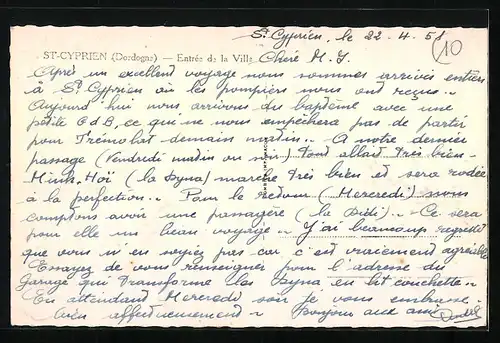 St Cyprien, le 22.4.51
(10
ST-CYPRIEN (Dordogne) — Entrée de la Ville
Chère M.J.
Après un excellent voyage nous sommes arrivés entiers
à St Cyprien où les pompiers nous ont reçus..
Aujourd'hui nous arrivons du baptème avec une
petite G d B, ce qui ne nous empêchera pas de partir
pour Trémolat demain matin.. A notre dernier
passage (Vendredi matin ou soir) tout allait très bien..
Minh-Hoï (la Dyna) marche très bien et sera rodée
à la perfection.. Pour le retour (Mercredi) nous
comptons avoir une passagère (la Didi).. Ce sera
pour elle un beau voyage.. J'ai beaucoup regretté
que vous n'en soyiez pas car c'est vraiment agréable
Essayez de vous renseigner pour l'adresse du
Garage qui transforme les Dyna en lit couchette..
En attendant Mercredi soir je vous embrasse
bien affectueusement.. Bonjour aux amis